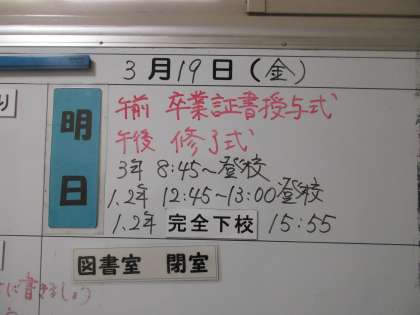 3月19日(金)
明日
午前 卒業証書授与式
午後 修了式
3年 8:45~登校
1.2年 12:45~13:00登校
1.2年 完全下校 15:55
図書室 閉室
り
に書きましょう